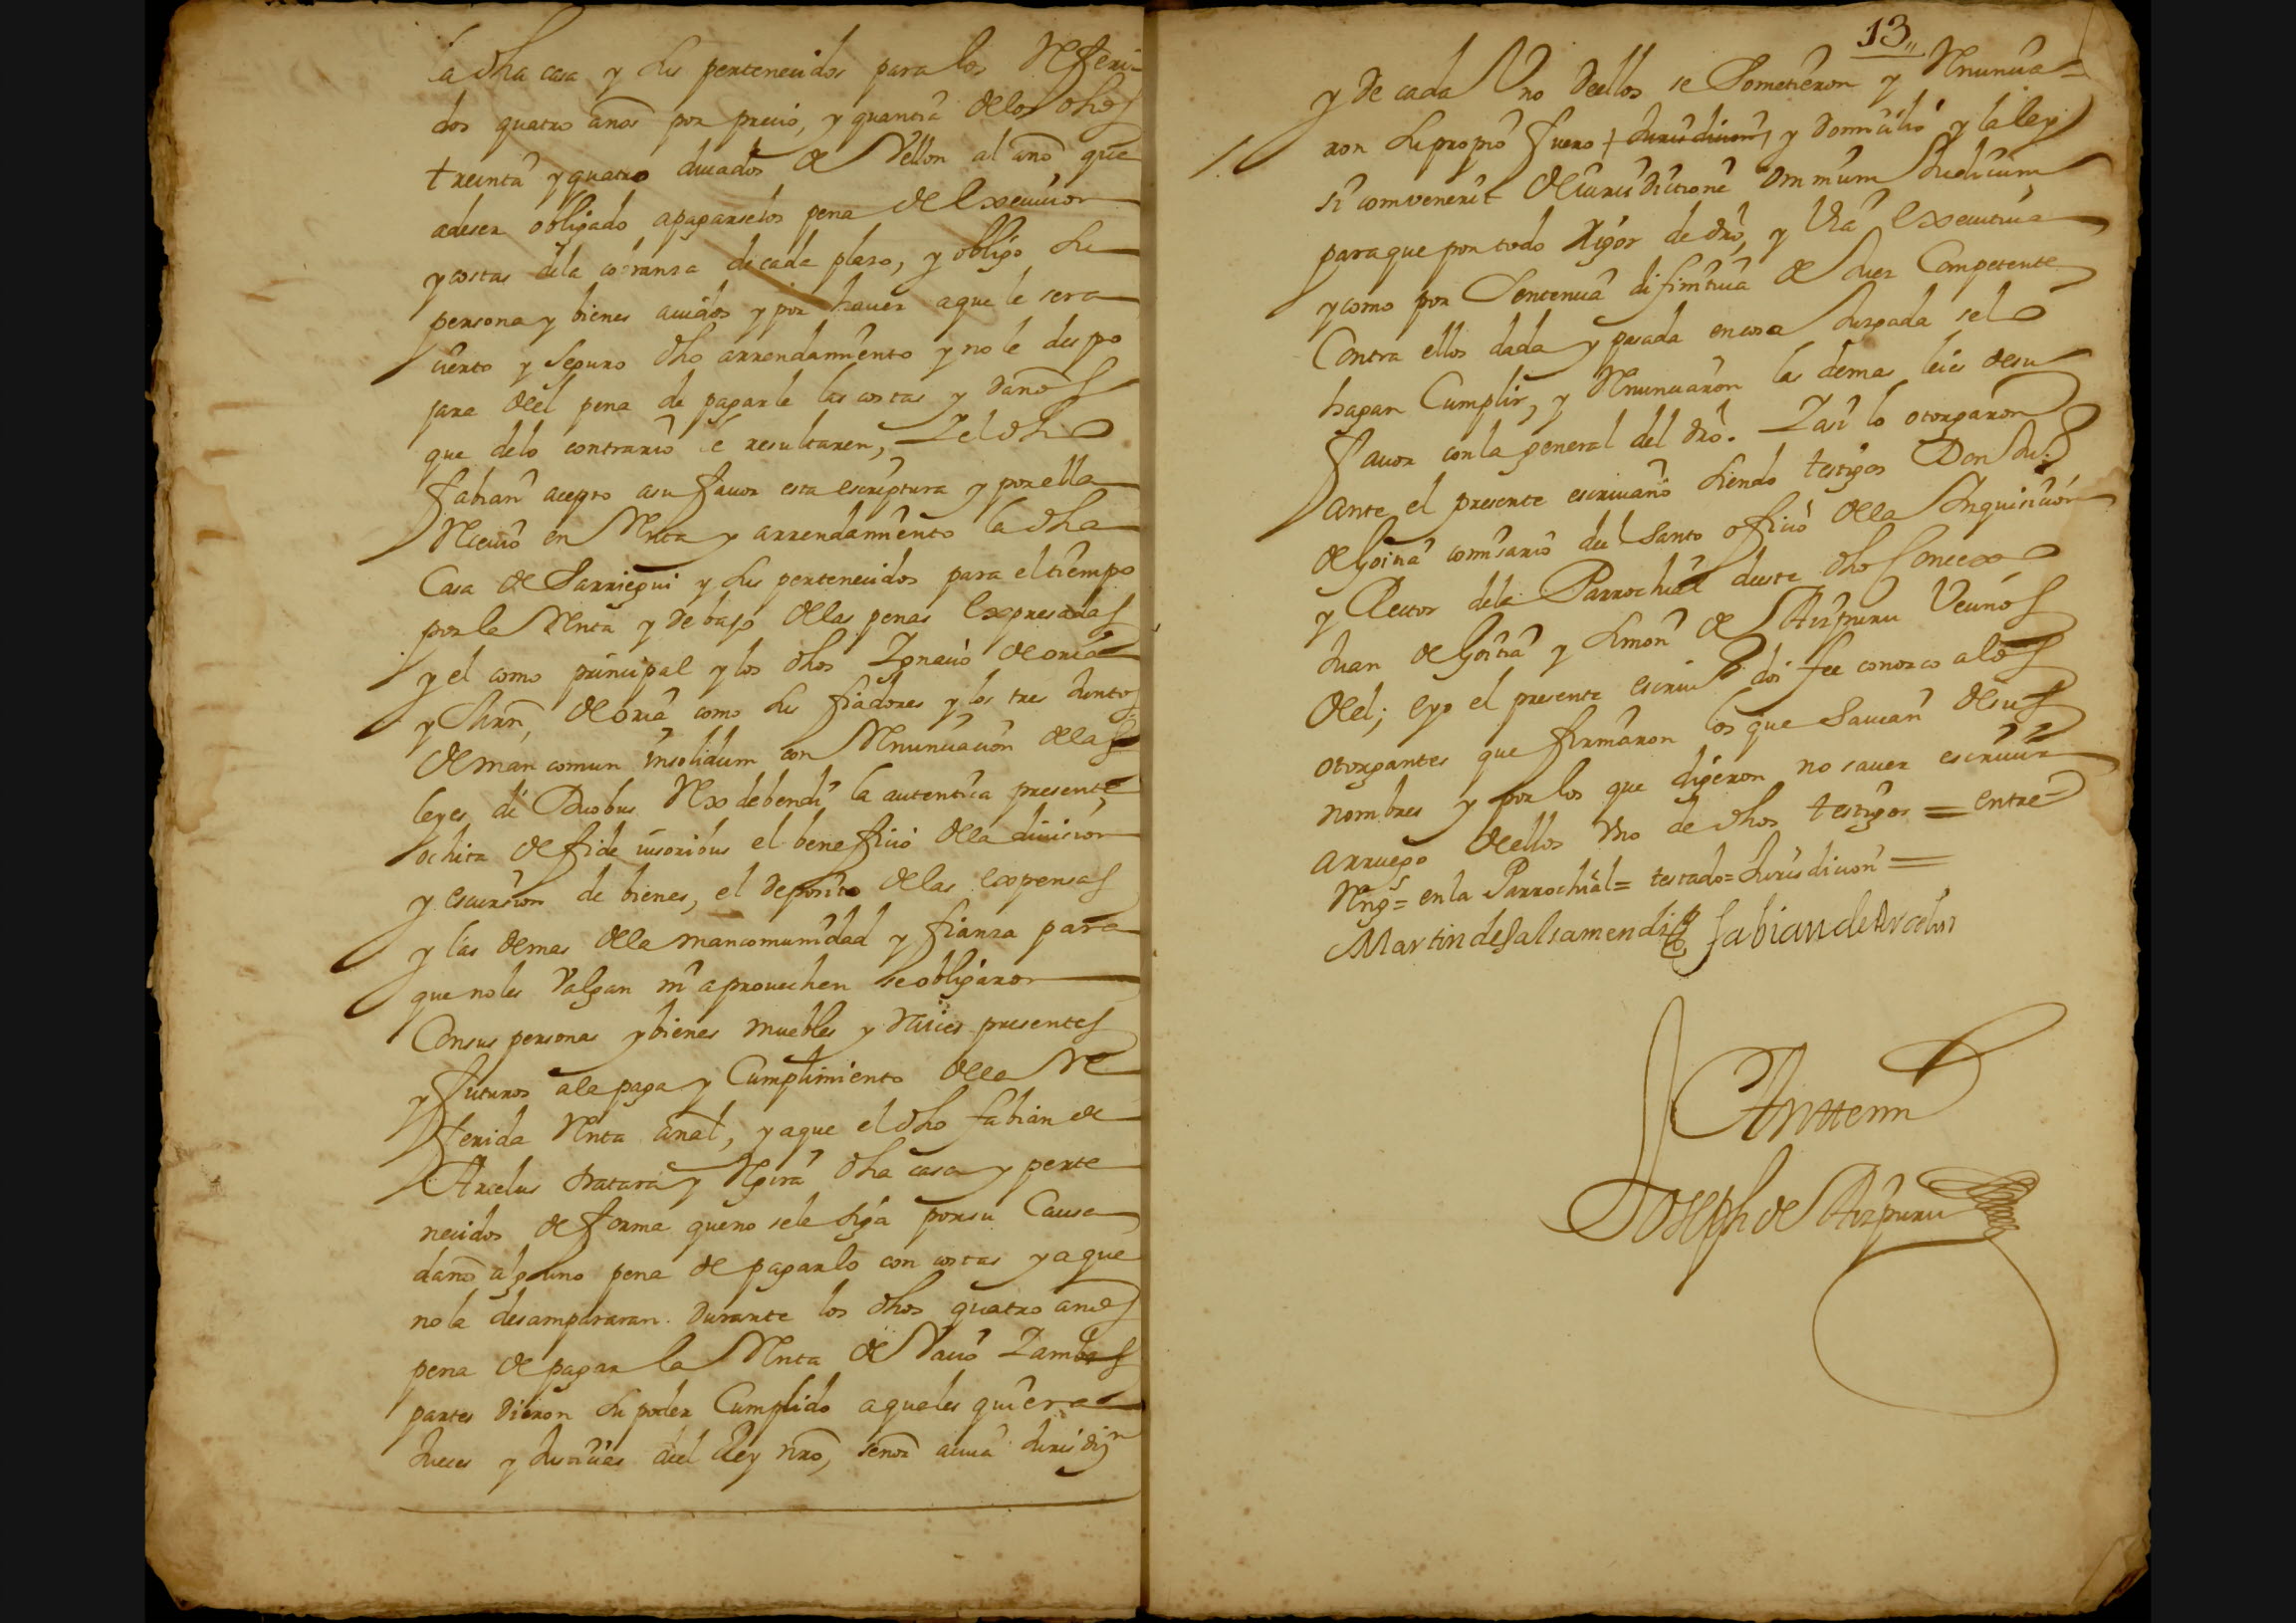 la dha casa y sus pertenecidos para los referi-
dos quatro años por precio, y quantia de los dhos
treinta y quatro ducados de Vellon al año que
a de ser obligado a pagarselos pena de execucion
y costas de la cobranza de cada plazo, y obligo su
persona y bienes auidos y por hauer a que le sera
cierto y seguro dho arrendamiento y no le despo
jara del pena de pagarle las costas y daños
que de lo contrario le resultaren, Y el dho
fabian acepto a su fauor esta escriptura y por ella
reciuio en renta y arrendamiento la dha
Casa de Sarriegui y sus pertenecidos para el tiempo
por la renta y debajo de las penas expresadas
y el como principal y los dhos Ygnacio de oria
y de oria como sus fiadores y los tres juntos
de man comun insolidum con renunciacion de las
leyes de Duobus rex debendi la autentica presente
ochita de fide iusoribus el beneficio de la diuision
y escursion de bienes, el deposito de las expensas
y las demas de la mancomunidad y fianza para
que no les valgan ni aprouechen se obligaron
Con sus personas y bienes muebles y raices presentes
y futuros a la paga y Cumplimiento de la re
ferida renta anal, y a que el dho fabian de
Arcelus tratara y regira dha casa y perte
necidos de forma que no se le siga por su Causa
daño alguno pena de pagarlo con costas y a que
no la desampararan durante los dhos quatro años
pena de pagar la renta de vacio Y ambas
partes dieron su poder Cumplido a quales quiera
Jueces y Justicias del Rey nro, señor a cuia jurisdizn
13
y de cada Uno de ellos se Sometieron y renuncia=
ron su propio fuero + Jurisdicion, y domicilio y la ley
si combenerit de iurisdictione ommium Judicum
para que por todo rigor de dro, y Via executiua
y como por Sentencia difinitiua de Juez Competente
Contra ellos dada y pasada en cosa Juzgada se lo
hagan Cumplir, y renunciaron las demas leies de su
fauor con la general del dro. Y asi lo otorgaron
ante el presente escriuano siendo testigos Don
de Goitia comisario del santo oficio de la Inquisicion
y Rector de la Parrochial deste dho Concexo
Juan de Goitia y Simon de Aizpuru Vecinos
del; e yo el presente escriuo doi fee conozco a los
otorgantes que firmaron los que sauian de sus
nombres y por los que digeron no sauer escriuir
a rruego de ellos vno de dhos testigos = entre=
Rengs = en la Parrochial = testado = Jurisdicion =
Martin de Salsamendi fabian de Arcelus
Ante mi
Joseph de Aizpuru